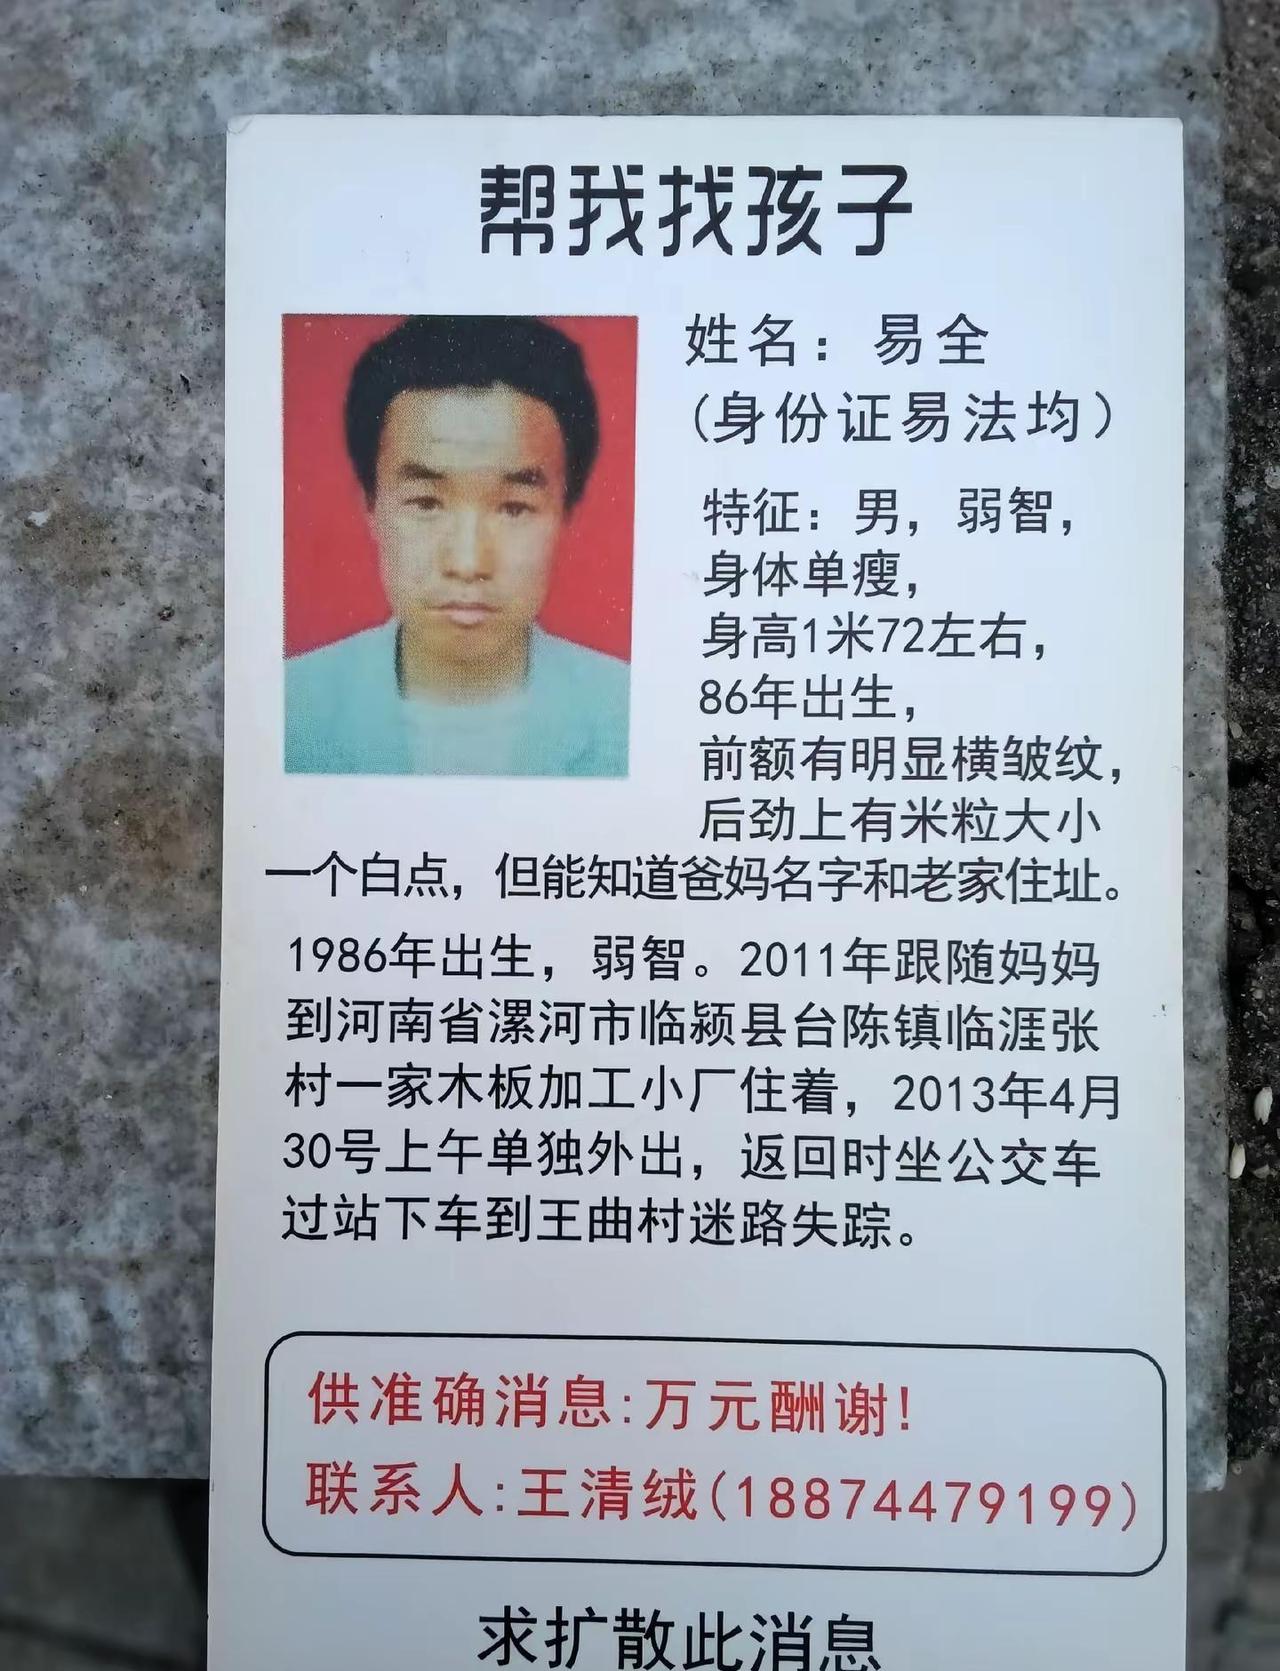 帮我找孩子
姓名：易全
（身份证易法均）
特征：男，弱智，
身体单瘦，
身高1米72左右，
86年出生，
前额有明显横皱纹，
后劲上有米粒大小
一个白点，但能知道爸妈名字和老家住址。
1986年出生，弱智。2011年跟随妈妈
到河南省漯河市临颍县台陈镇临涯张
村一家木板加工小厂住着，2013年4月
30号上午单独外出，返回时坐公交车
过站下车到王曲村迷路失踪。
供准确消息:万元酬谢!
联系人:王清绒(18874479199)
求扩散此消息